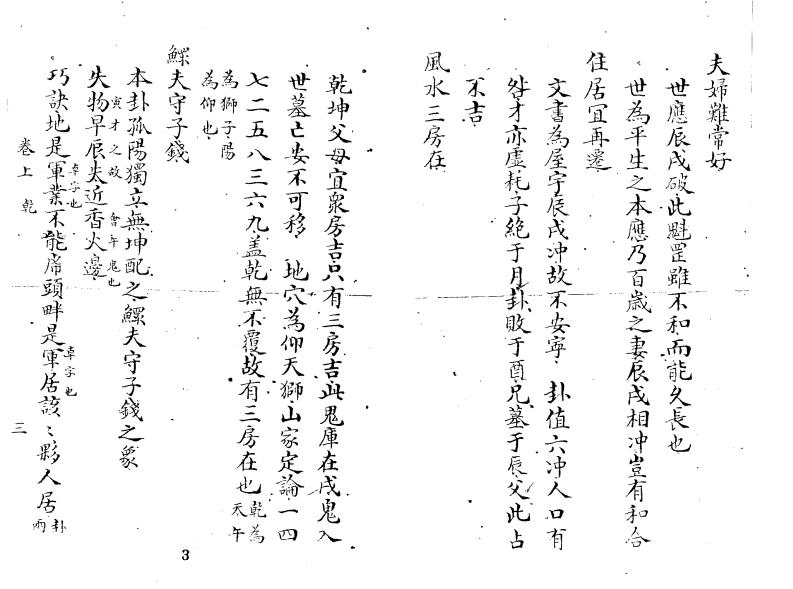 夫婦難常好
世應辰戌破此魁罡雖不和而能久長也
世為平生之本應乃百歲之妻辰戌相冲豈有和合
住居宜再遷
文書為屋宇辰戌冲故不安寧 卦值六冲人口有
財才亦虛耗子絕于月卦敗于酉兄墓于辰父此占
不吉
風水三房在
乾坤父母宜衆房吉只有三房吉此鬼庫在戌鬼入
世墓亡安不可移 地穴為仰天獅山家定論一四
七二五八三六九盖乾無不覆故有三房在也 乾為天午
為獅子陽為仰也
鰥夫守子錢
本卦孤陽獨立無坤配之鰥夫守子錢之象
寅才之故 會午鬼也
失物早辰失近香火邊
卓字也 卓字也
巧訣地是軍業不能席頭畔是軍居該〻夥人居 卦內
卷上 乾 三
3